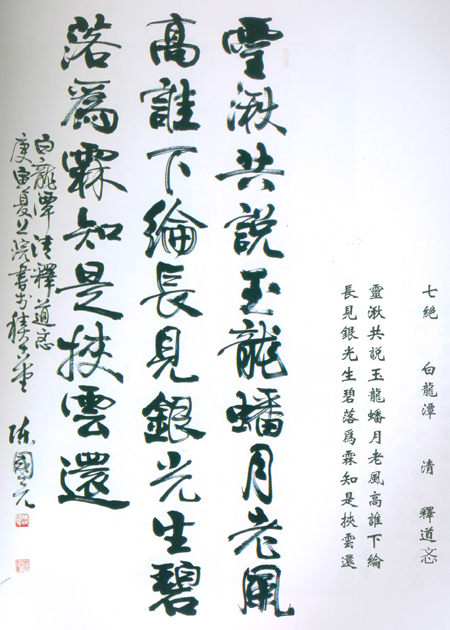 七絶 白龍潭 清 釋道忞
靈湫共說玉龍蟠月老風高誰下綸
長見銀光生碧落爲霖知是挾雲還
靈湫共說玉龍蟠月老風
高誰下綸長見銀光生碧
落爲霖知是挾雲還
白龍潭清釋道忞
庚寅夏 書於 堂 陳國元